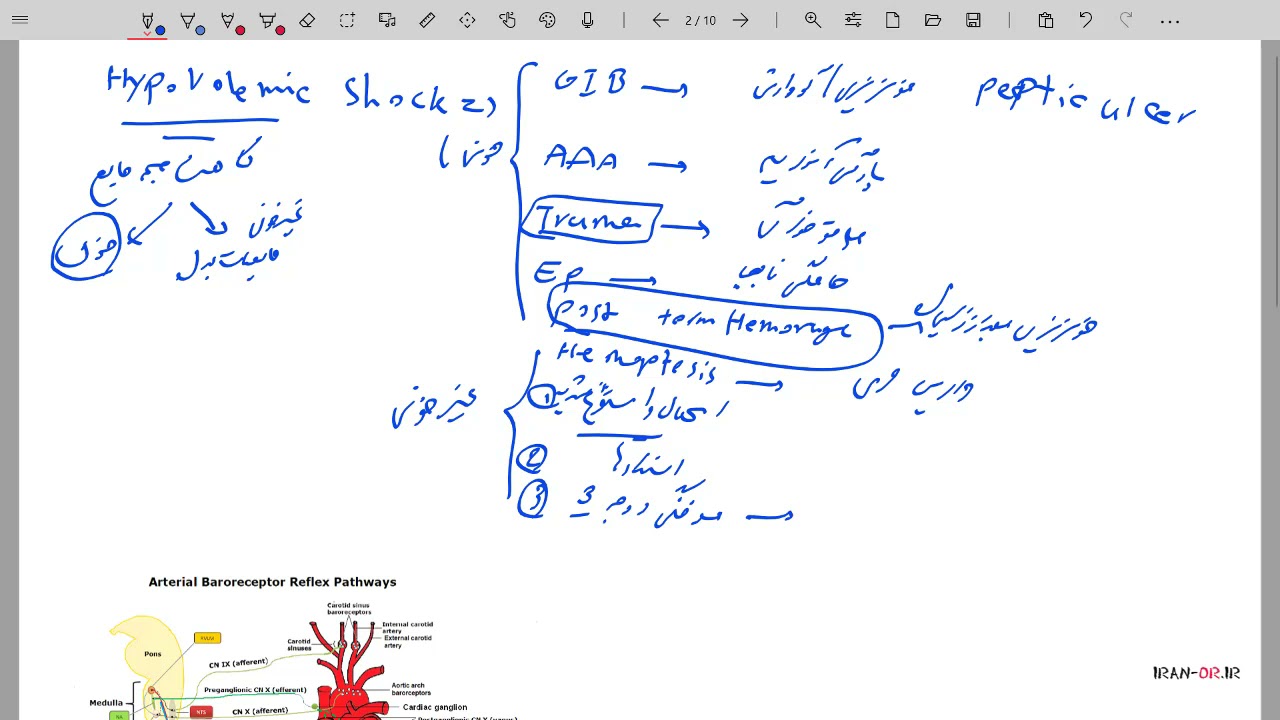 2 / 10
Hypovolemic Shock
کاهش حجم مایع
خونی
غیرخونی
مایعات بدن
خونی
GIB → خونریزی گوارش Peptic ulcer
AAA → پارگی آئورت
Truma →
EP → حاملگی نابجا
Post term Hemoruge → خونریزی بعد از زایمان
Hemoptesis → واریس مری
غیرخونی
① اسهال و استفراغ شدید
②
③ سوختگی درجه 3 →
Arterial Baroreceptor Reflex Pathways
Carotid sinus baroreceptors
Internal carotid artery
External carotid artery
Carotid sinuses
Pons
RVLM
CN IX (afferent)
Aortic arch baroreceptors
Preganglionic CN X (efferent)
Medulla
Cardiac ganglion
NTS
CN X (afferent)
NA
IRAN-OR.IR